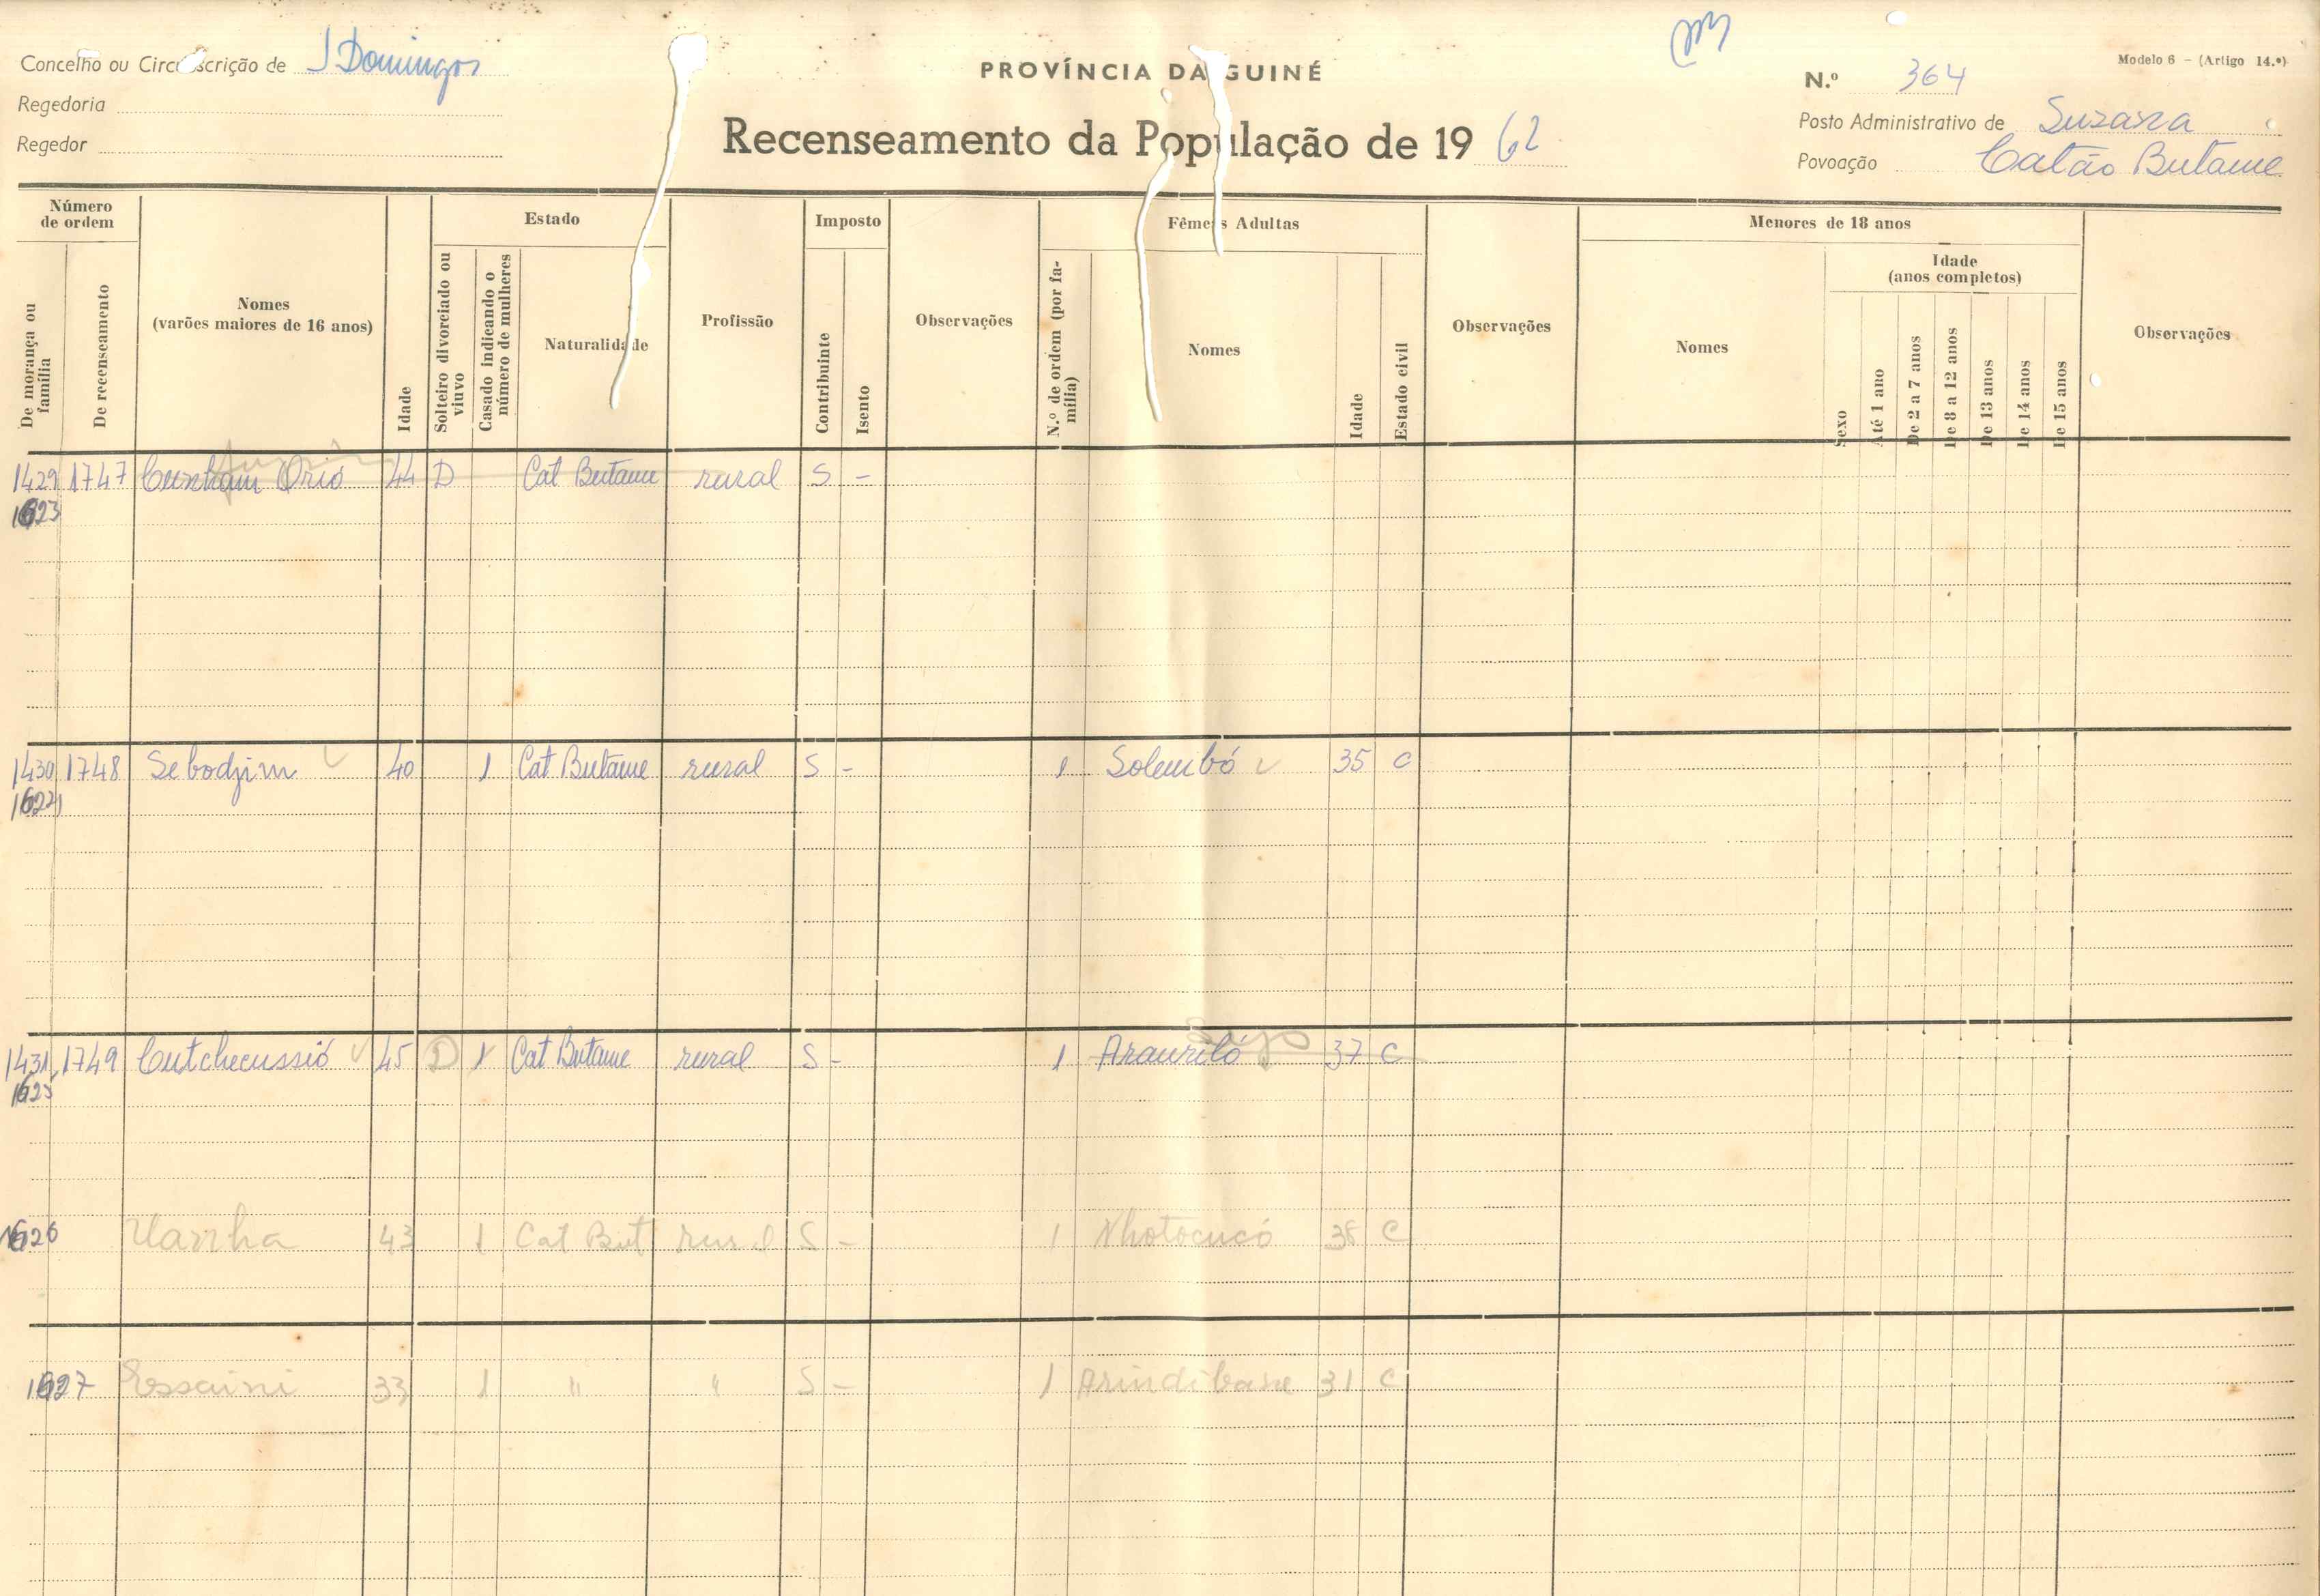 Concelho ou Circunscrição de S Domingos
Regedoria
Regedor
PROVÍNCIA DA GUINÉ
Recenseamento da População de 19 62
Modelo 6 - (Artigo 14.º)
N.º 364
Posto Administrativo de Suzana
Povoação Catão Butame
Número de ordem
De morança ou família
De recenseamento
Nomes
(varões maiores de 16 anos)
Idade
Estado
Solteiro divorciado ou viuvo
Casado indicando o número de mulheres
Naturalidade
Profissão
Imposto
Contribuinte
Isento
Observações
Fêmeas Adultas
N.º de ordem (por família)
Nomes
Idade
Estado civil
Observações
Menores de 18 anos
Nomes
Sexo
Idade
(anos completos)
Até 1 ano
De 2 a 7 anos
De 8 a 12 anos
De 13 anos
De 14 anos
De 15 anos
Observações
1429 1747 Orió 44 D Cat Butame rural S -
1623
1430 1748 Sebodjim 40 1 Cat Butame rural S - 1 Solembó 35 C
1431 1749 Cutchecussió 45 D 1 Cat Butame rural S - 1 37 C
1625
1626 Uanha 43 1 Cat But rural S - 1 Nhotocucó 38 C
1627 Essaini 33 1 " " S - 1 31 C